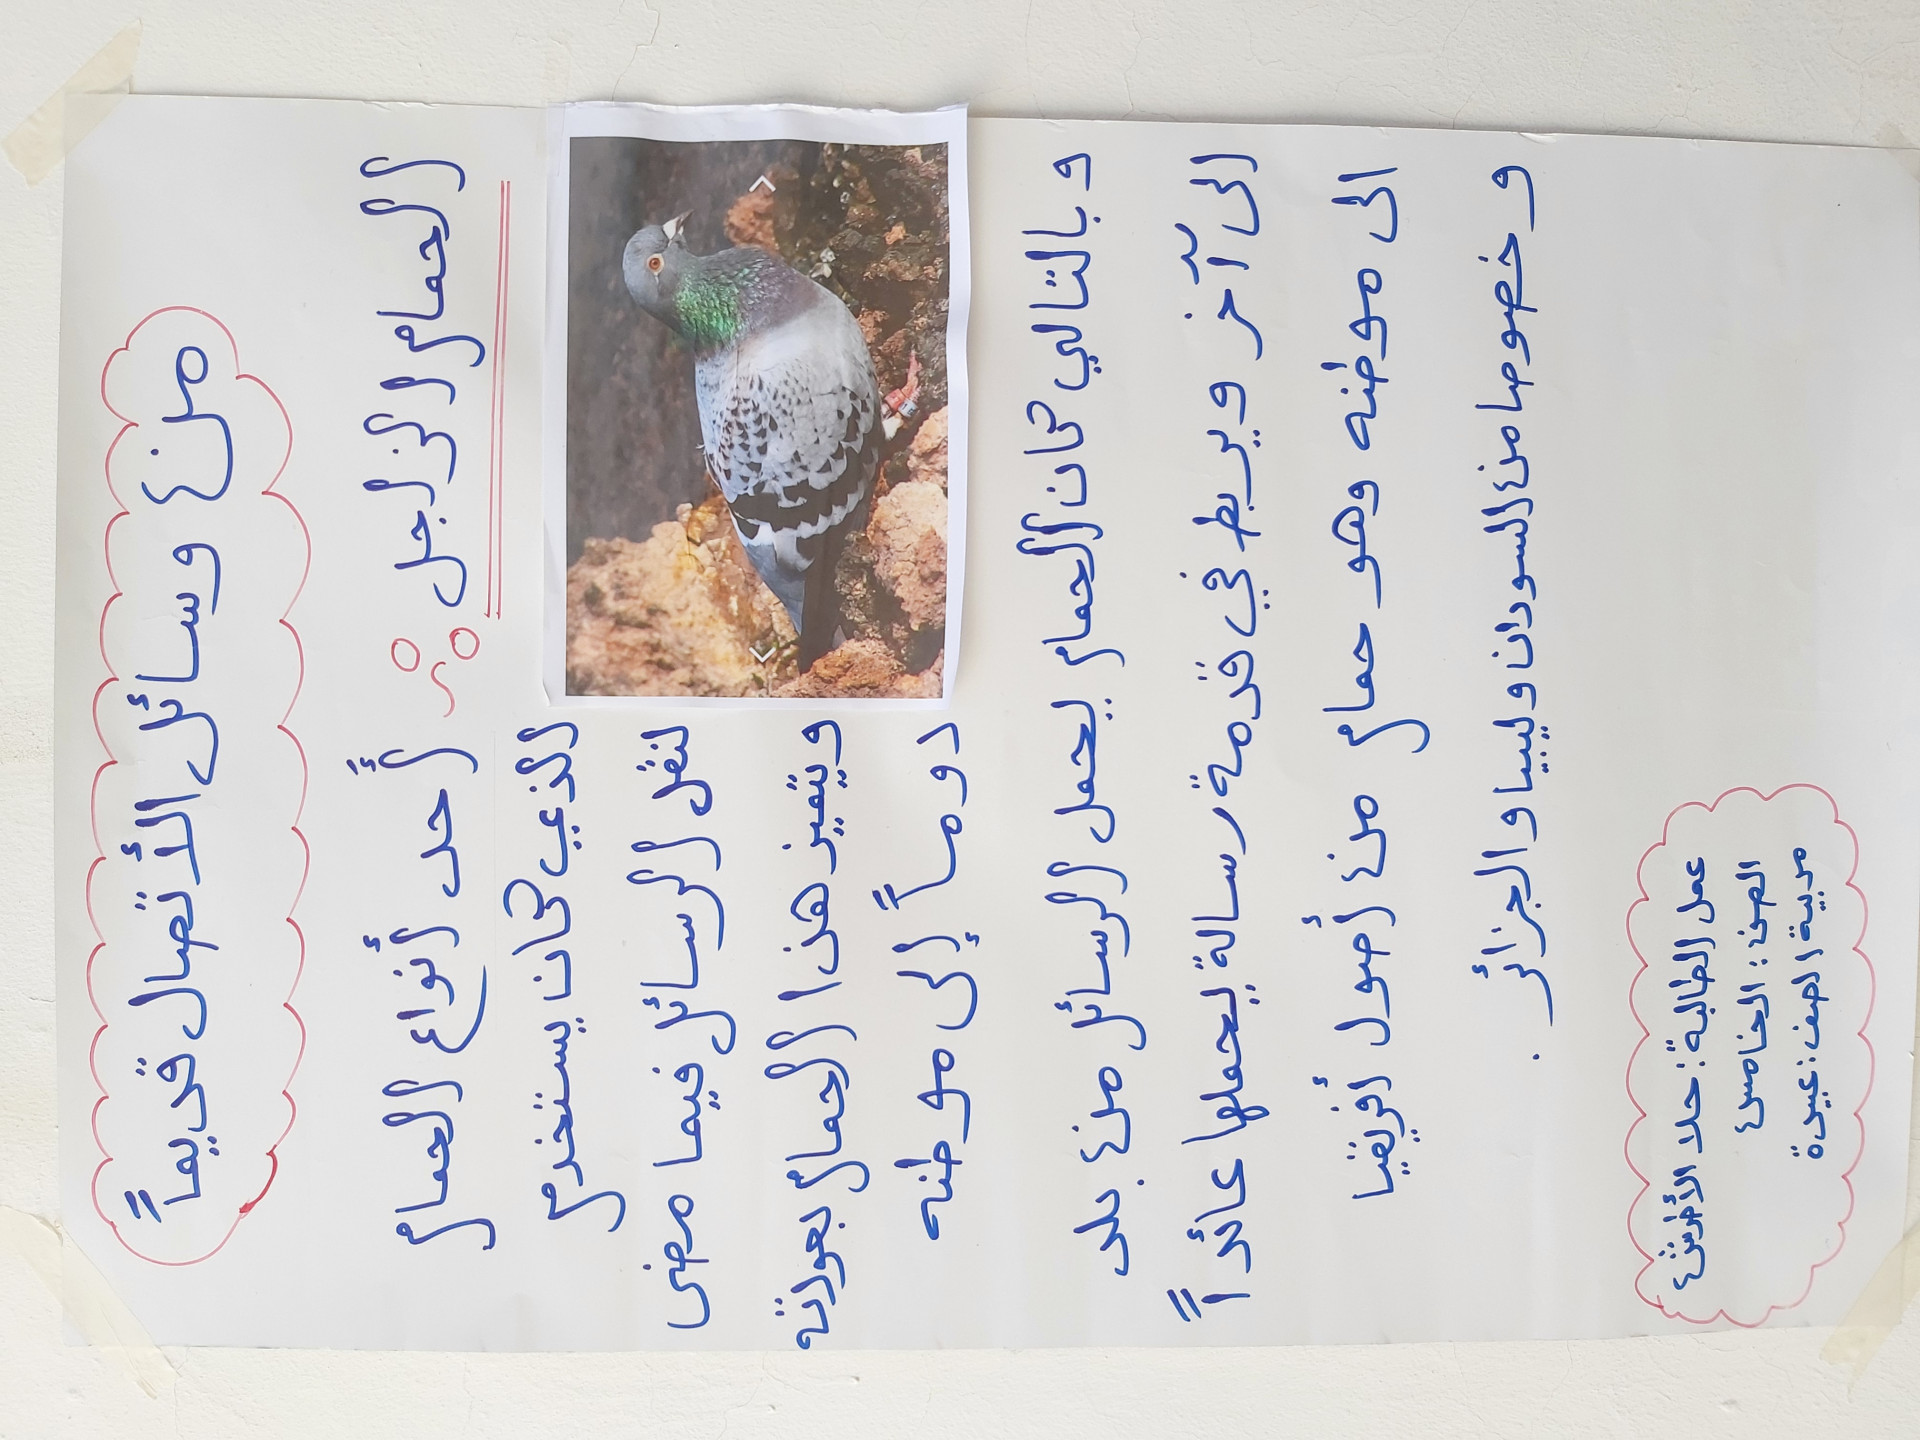 من وسائل الأتصال قديماً
الحمام الزاجل
أحد أنواع الحمام
الذي كان يستخدم
لنقل الرسائل فيما مضى
ويتميز هذا الحمام بعودته
دوماً إلى موطنه
و بالتالي كان الحمام يحمل الرسائل من بلد
الى آخر ويربط في قدمة رسالة يحملها عائداً
الى موطنه وهو حمام من أصول أفريقيا
و خصوصا من السودان و ليبيا و الجزائر .
عمل الطالبة : حلا الأطرش
الصف : الخامس
مربية الصف : عبيدة